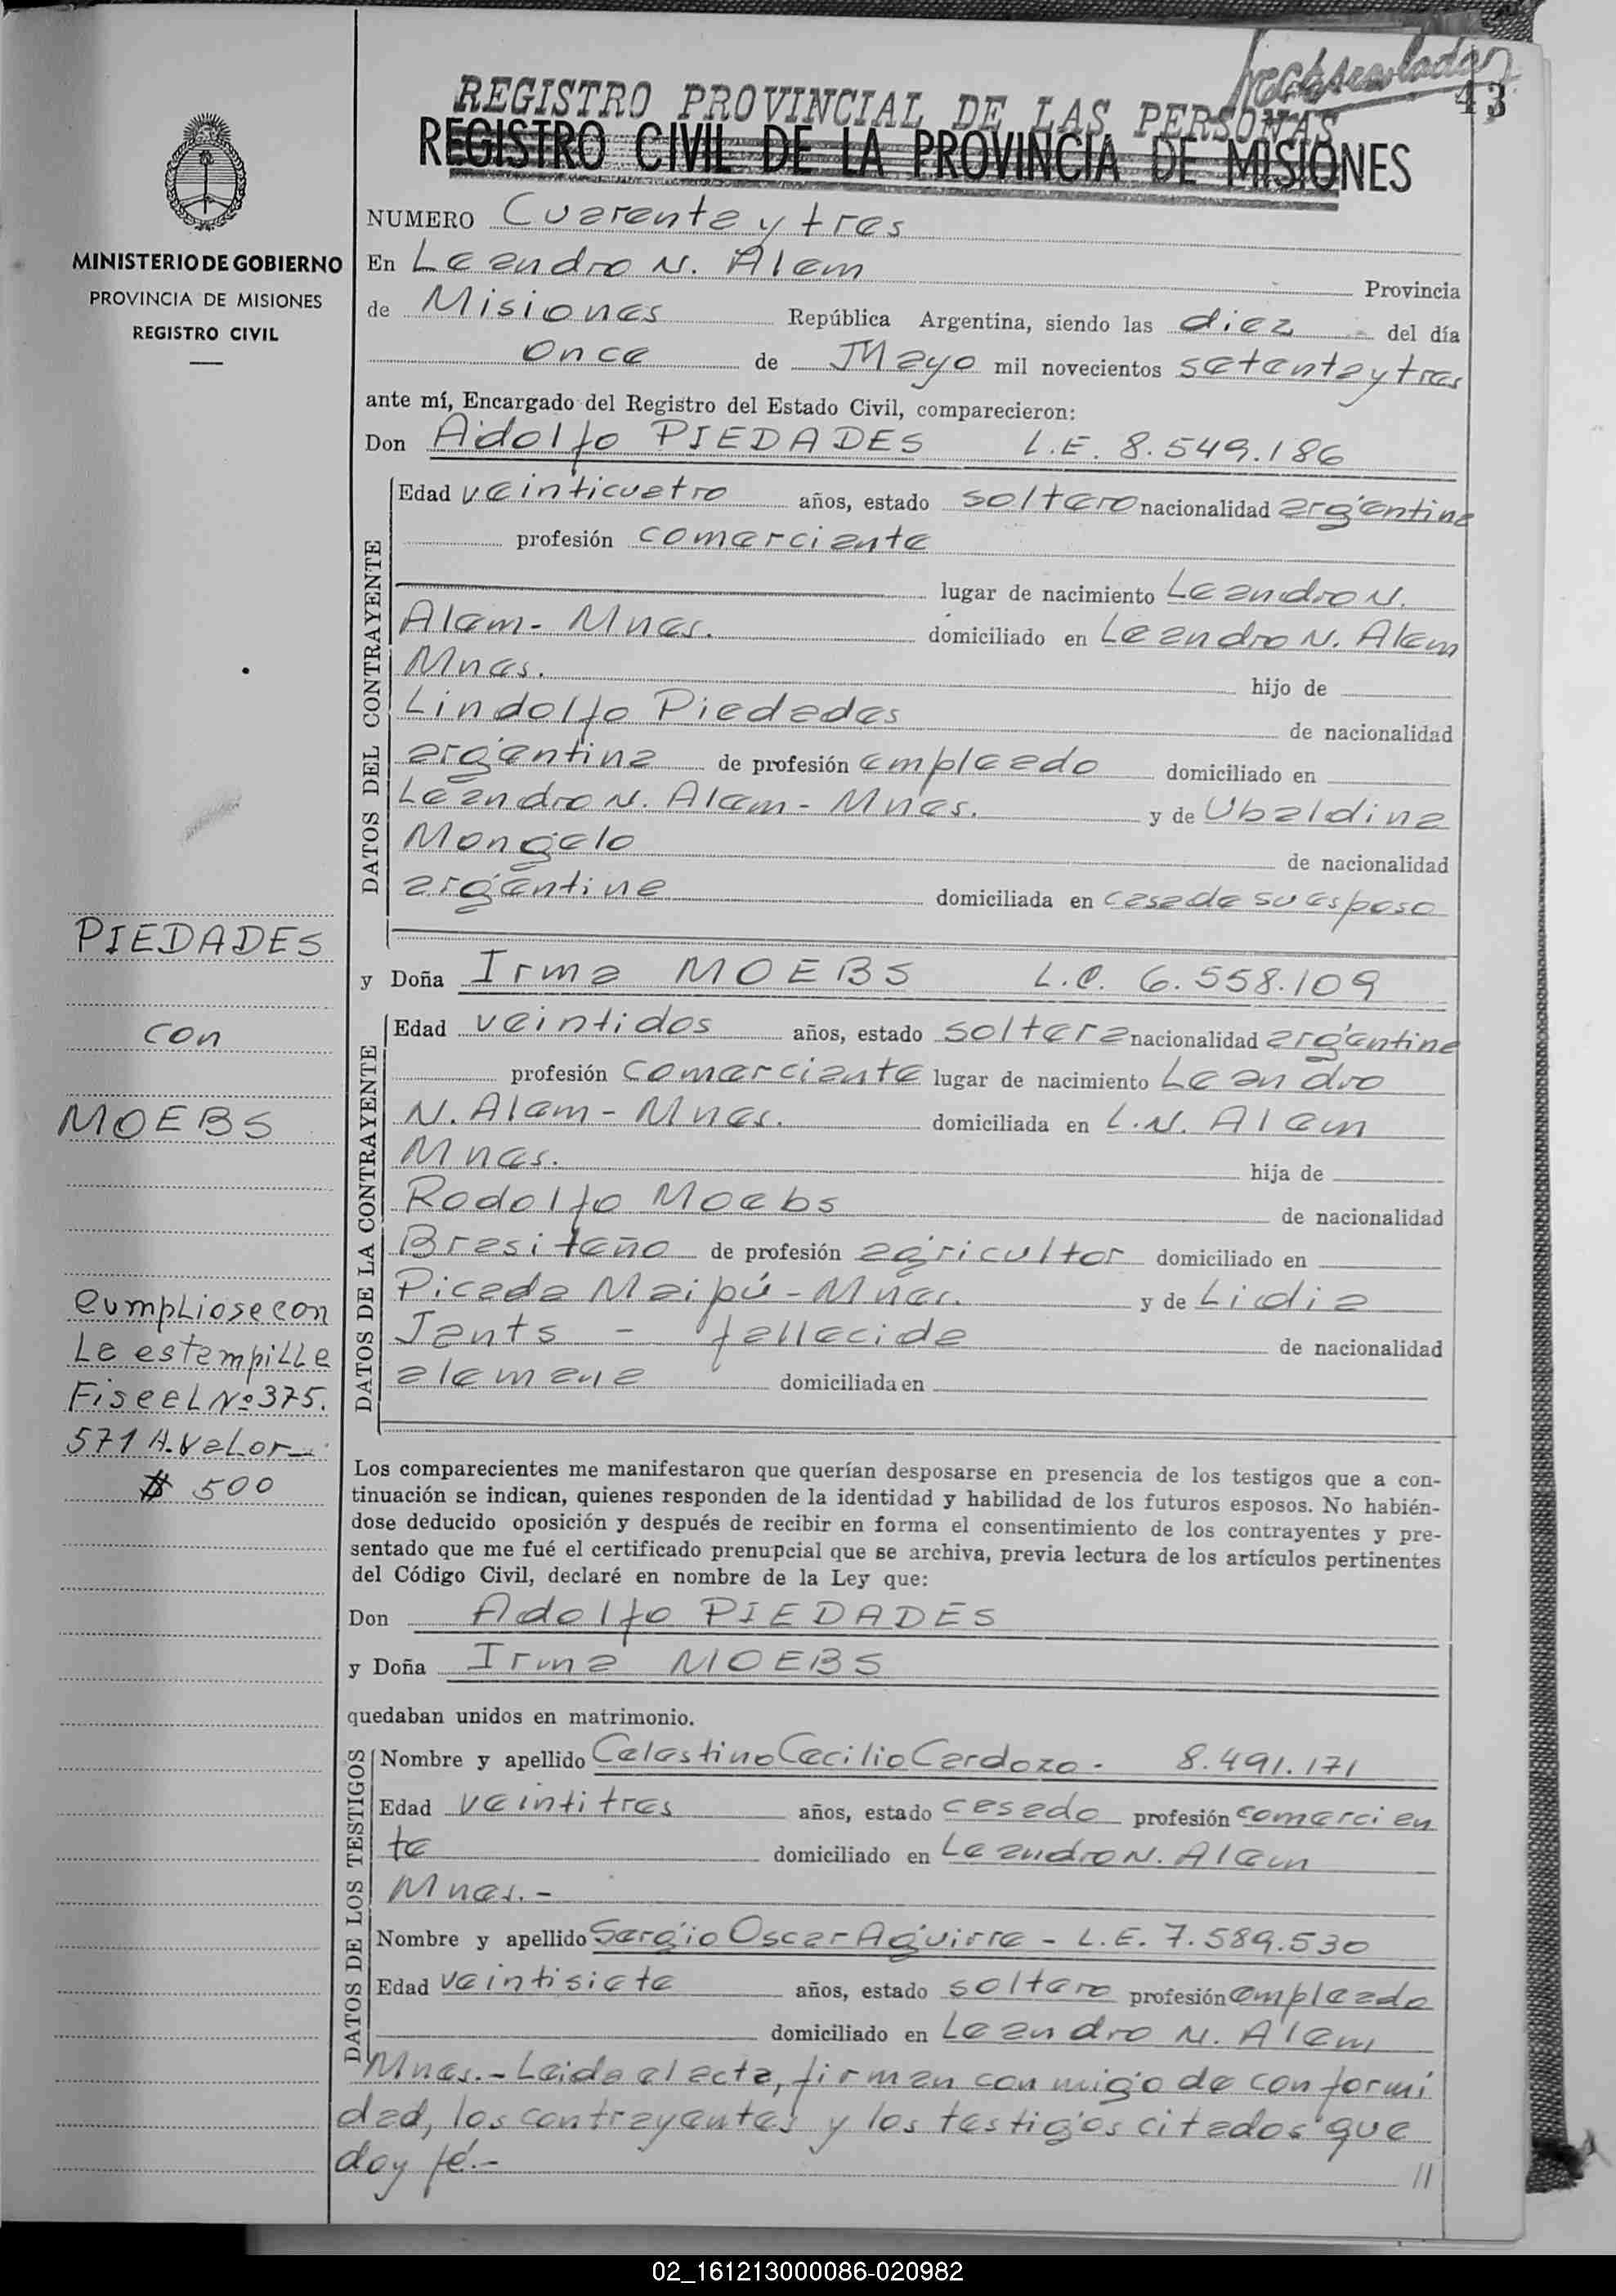 43
REGISTRO PROVINCIAL DE LAS PERSONAS
REGISTRO CIVIL DE LA PROVINCIA DE MISIONES
MINISTERIO DE GOBIERNO
PROVINCIA DE MISIONES
REGISTRO CIVIL
NUMERO Cuarenta y tres
En Leandro N. Alem Provincia
de Misiones República Argentina, siendo las diez del día
once de Mayo mil novecientos setenta y tres
ante mí, Encargado del Registro del Estado Civil, comparecieron:
Don Adolfo PIEDADES L.E. 8.549.186
DATOS DEL CONTRAYENTE
Edad veinticuatro años, estado soltero nacionalidad argentina
profesión comerciante
lugar de nacimiento Leandro N.
Alem - Mnes. domiciliado en Leandro N. Alem
Mnes. hijo de
Lindolfo Piedades de nacionalidad
argentina de profesión empleado domiciliado en
Leandro N. Alem - Mnes. y de Ubaldina
Mongelo de nacionalidad
argentina domiciliada en casa de su esposo
y Doña Irma MOEBS L.C. 6.558.109
DATOS DE LA CONTRAYENTE
Edad veintidos años, estado soltera nacionalidad argentina
profesión comerciante lugar de nacimiento Leandro
N. Alem - Mnes. domiciliada en L.N. Alem
Mnes. hija de
Rodolfo Moebs de nacionalidad
Brasileño de profesión agricultor domiciliado en
Picada Maipú - Mnes. y de Lidia
Jants - fallecida de nacionalidad
alemana domiciliada en
PIEDADES
con
MOEBS
Cumpliose con
La estampilla
Fiscal Nº 375.
571 A. Valor
$ 500
Los comparecientes me manifestaron que querían desposarse en presencia de los testigos que a con-
tinuación se indican, quienes responden de la identidad y habilidad de los futuros esposos. No habién-
dose deducido oposición y después de recibir en forma el consentimiento de los contrayentes y pre-
sentado que me fué el certificado prenupcial que se archiva, previa lectura de los artículos pertinentes
del Código Civil, declaré en nombre de la Ley que:
Don Adolfo PIEDADES
y Doña Irma MOEBS
quedaban unidos en matrimonio.
DATOS DE LOS TESTIGOS
Nombre y apellido Celestino Cecilio Cardozo - 8.491.171
Edad veintitres años, estado casado profesión comercian
te domiciliado en Leandro N. Alem
Mnes. -
Nombre y apellido Sergio Oscar Aguirre - L.E. 7.589.530
Edad veintisiete años, estado soltero profesión empleado
domiciliado en Leandro N. Alem
Mnes. - Leida el acta, firman conmigo de conformi
dad, los contrayentes y los testigos citados que
doy fé. - //
02_161213000086-020982